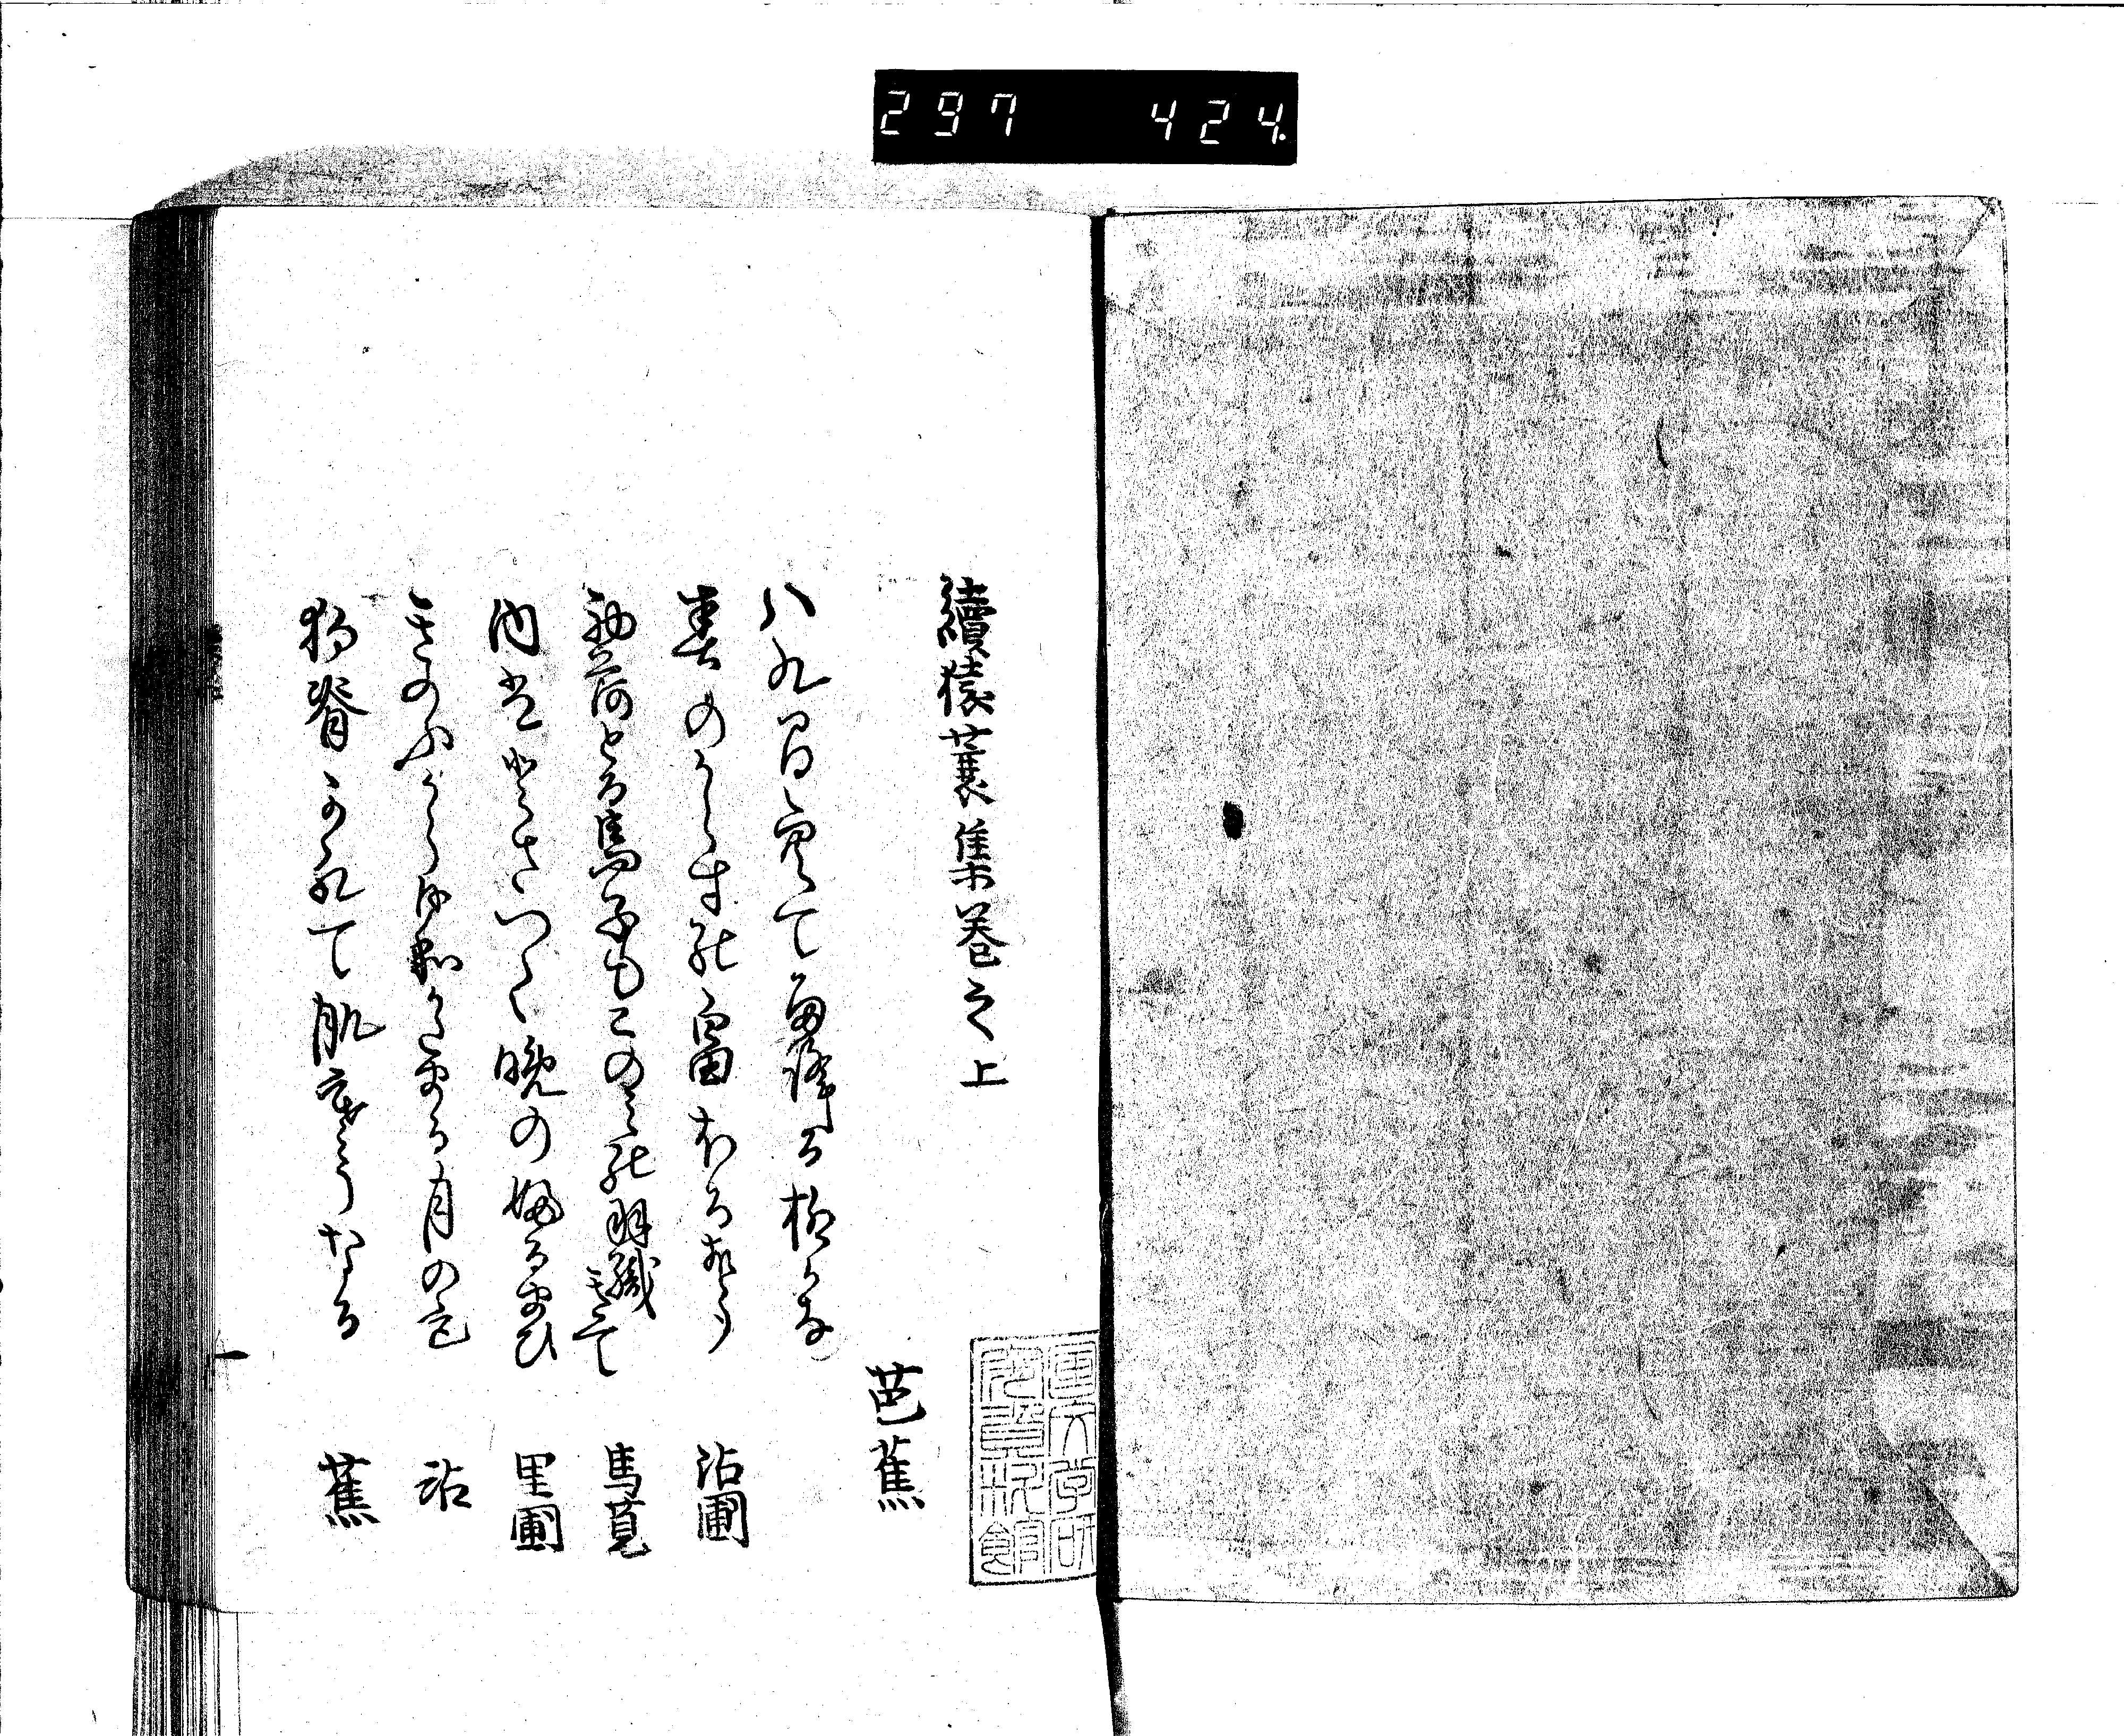 297 424.
續猿蓑集巻之上
芭蕉
八九間空て雨降る柳かな
春のからすの畠ほる聲
沾圃
初荷とる馬子もこのみの羽織きて
馬莧
内はどさつく晩の振るまひ
里圃
きのふから日和かたまる月の色
沾
狗脊かれて肌寒うなる
蕉
国文学研究資料館